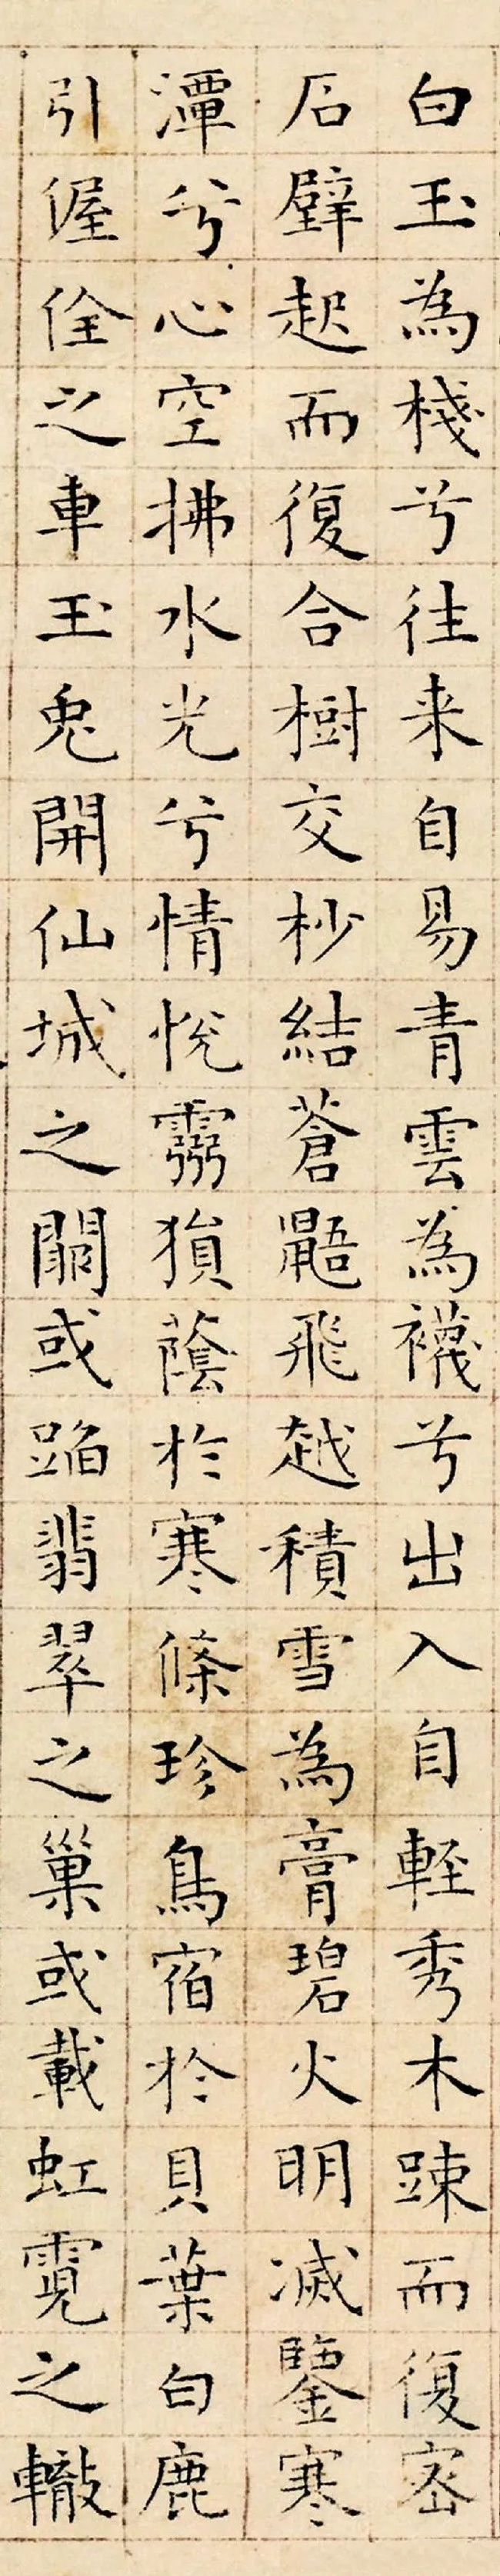 白玉為棧兮往来自易青雲為襪兮出入自輕秀木踈而復密
石壁起而復合樹交杪結蒼鼯飛越積雪為膏碧火明滅鑒寒
潭兮心空拂水光兮情悅靈猿蔭於寒條珍鳥宿於貝葉白鹿
引偓佺之車玉兔開仙城之闕或蹈翡翠之巢或載虹霓之轍